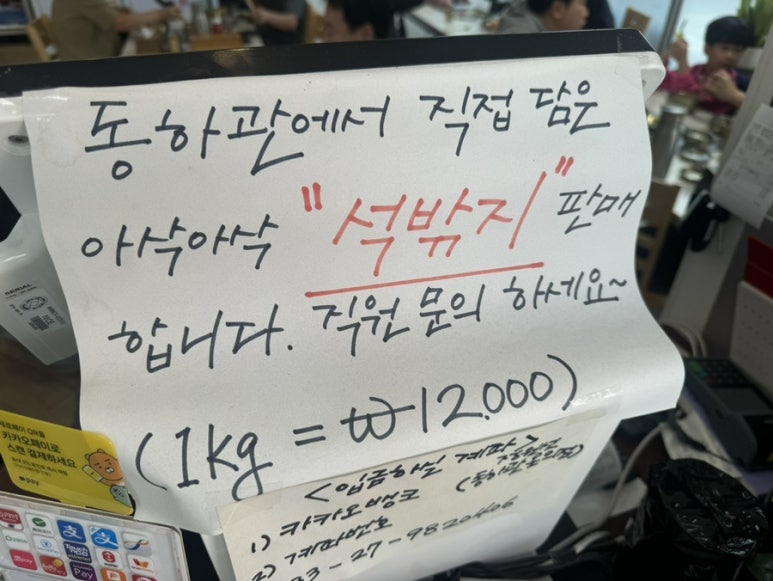 동하관에서 직접 담은
아삭아삭 "석밖지" 판매
합니다. 직원 문의 하세요~
(1kg = ₩12.000)
<입금하실 계좌>
1) 카카오뱅크
2) 계좌번호
33-27-9820406
카카오페이로
스캔 결제하세요
pay
SERIAL